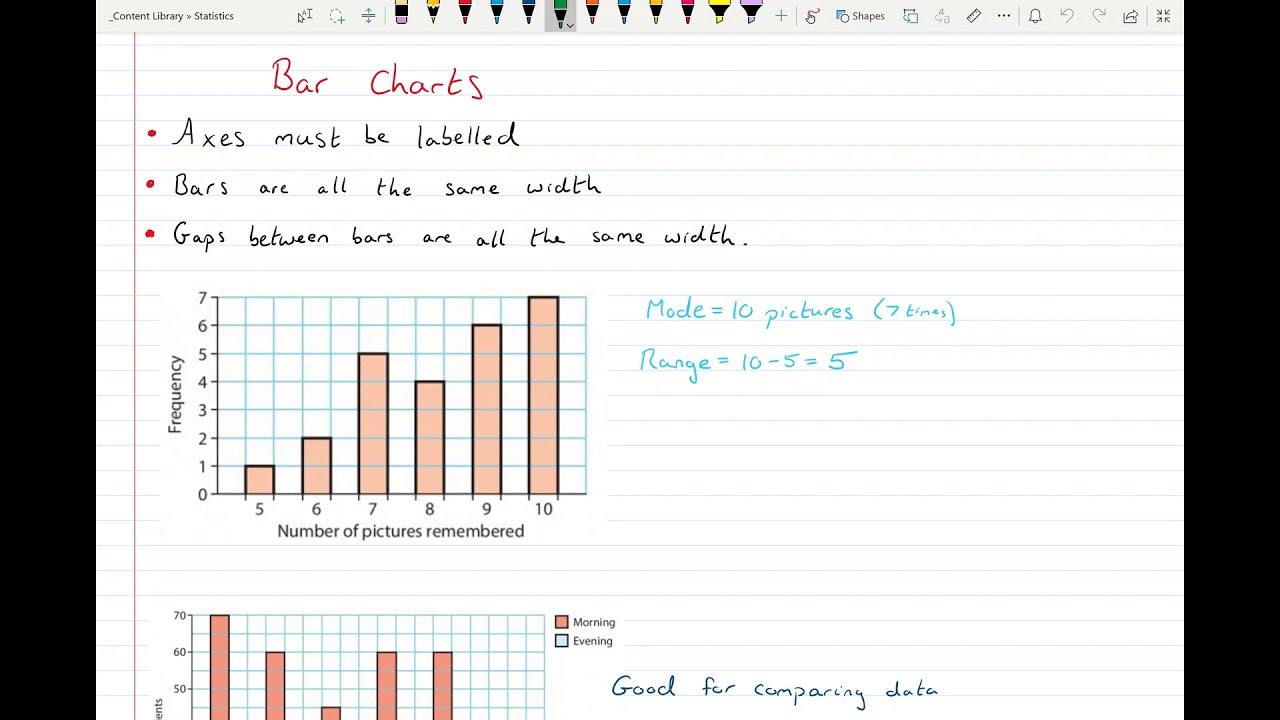 _Content Library » Statistics
Shapes
Bar Charts
• Axes must be labelled
• Bars are all the same width
• Gaps between bars are all the same width.
7
6
5
4
3
2
1
0
Frequency
5 6 7 8 9 10
Number of pictures remembered
Mode = 10 pictures (7 times)
Range = 10 - 5 = 5
70
60
50
Morning
Evening
Good for comparing data